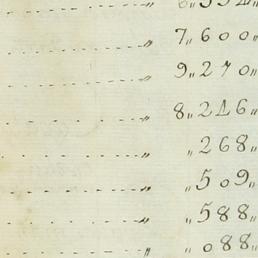 7„600„
9„270„
8„246„
„268„
„509„
„588„
„088„